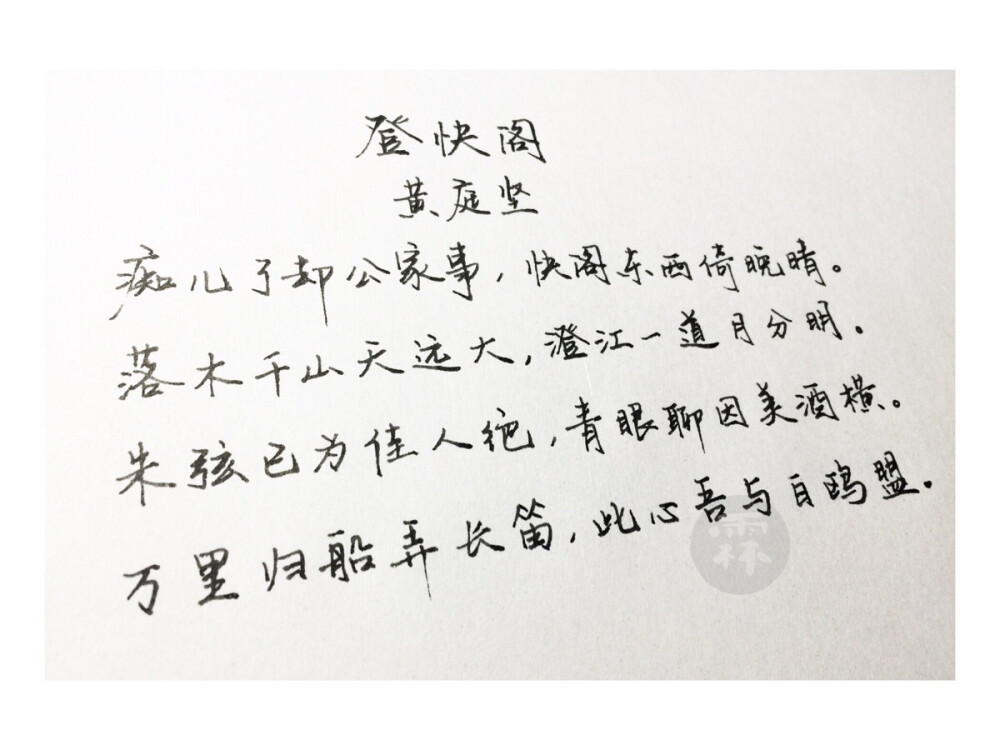 登快阁
黄庭坚
痴儿了却公家事，快阁东西倚晚晴。
落木千山天远大，澄江一道月分明。
朱弦已为佳人绝，青眼聊因美酒横。
万里归船弄长笛，此心吾与白鸥盟。
霖